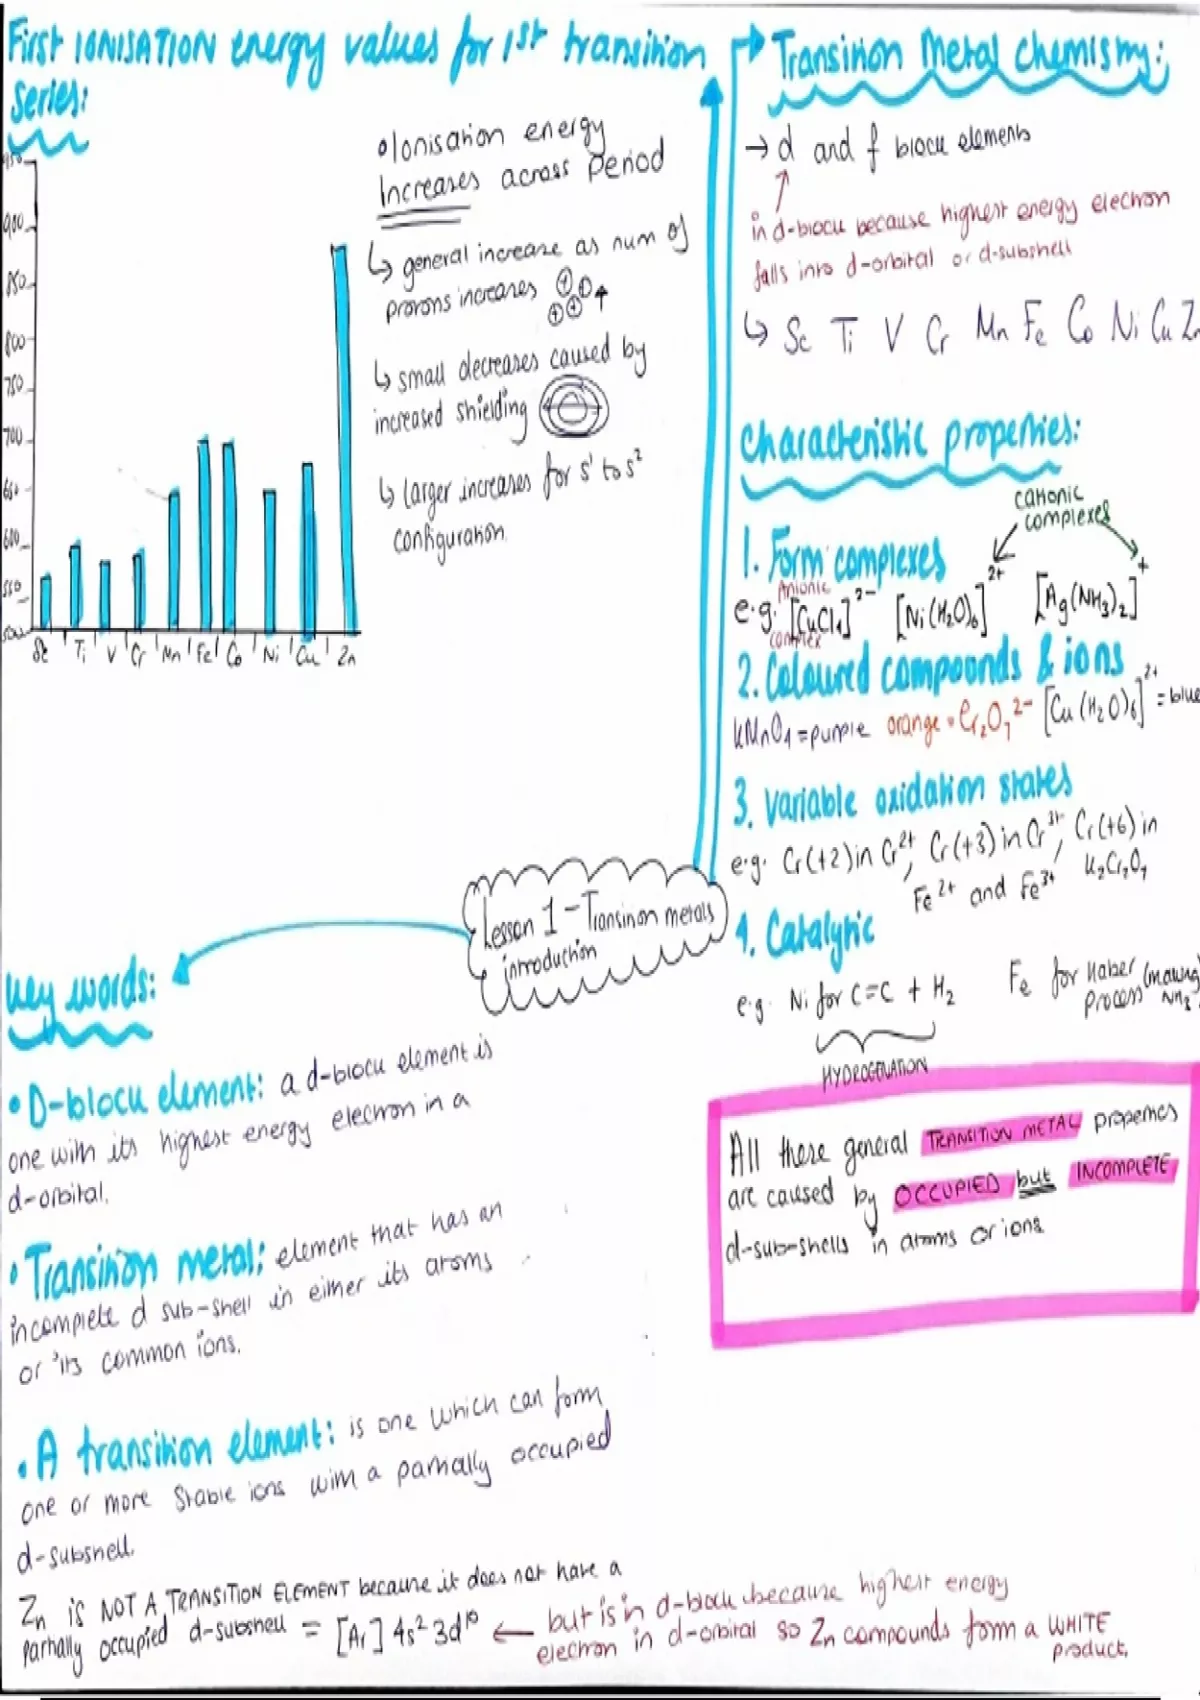 First IONISATION energy values for 1st transition
series:
950
900
850
800
750
700
650
600
550
500
Sc Ti V Cr Mn Fe Co Ni Cu Zn
•Ionisation energy
Increases across Period
↳ general increase as num of
protons increases
↳ small decreases caused by
increased shielding
↳ larger increases for s¹ to s²
configuration.
Transition Metal Chemistry:
→ d and f block elements
in d-block because highest energy electron
falls into d-orbital or d-subshell
↳ Sc Ti V Cr Mn Fe Co Ni Cu Zn
Characteristic properties:
cationic
complexes
1. Form complexes
Anionic
e.g. [CuCl4]²⁻ [Ni(H₂O)₆]²⁺ [Ag(NH₃)₂]⁺
complex
2. Coloured compounds & ions
KMnO4 = purple orange = Cr₂O₇²⁻ [Cu(H₂O)₆]²⁺ = blue
3. Variable oxidation states
e.g. Cr(+2) in Cr²⁺, Cr(+3) in Cr³⁺, Cr(+6) in
K₂Cr₂O₇
Fe²⁺ and Fe³⁺
4. Catalytic
e.g. Ni for C=C + H₂ Fe for Haber (making
process NH₃)
HYDROGENATION
All these general TRANSITION METAL properties
are caused by OCCUPIED but INCOMPLETE
d-sub-shells in atoms or ions
Lesson 1 - Transition metals
introduction
Key words:
• D-block element: a d-block element is
one with its highest energy electron in a
d-orbital.
• Transition metal: element that has an
incomplete d sub-shell in either its atoms
or its common ions.
• A transition element: is one which can form
one or more stable ions with a partially occupied
d-subshell.
Zn is NOT A TRANSITION ELEMENT because it does not have a
partially occupied d-subshell = [Ar] 4s² 3d¹⁰ ← but is in d-block because highest energy
electron in d-orbital so Zn compounds form a WHITE
product.